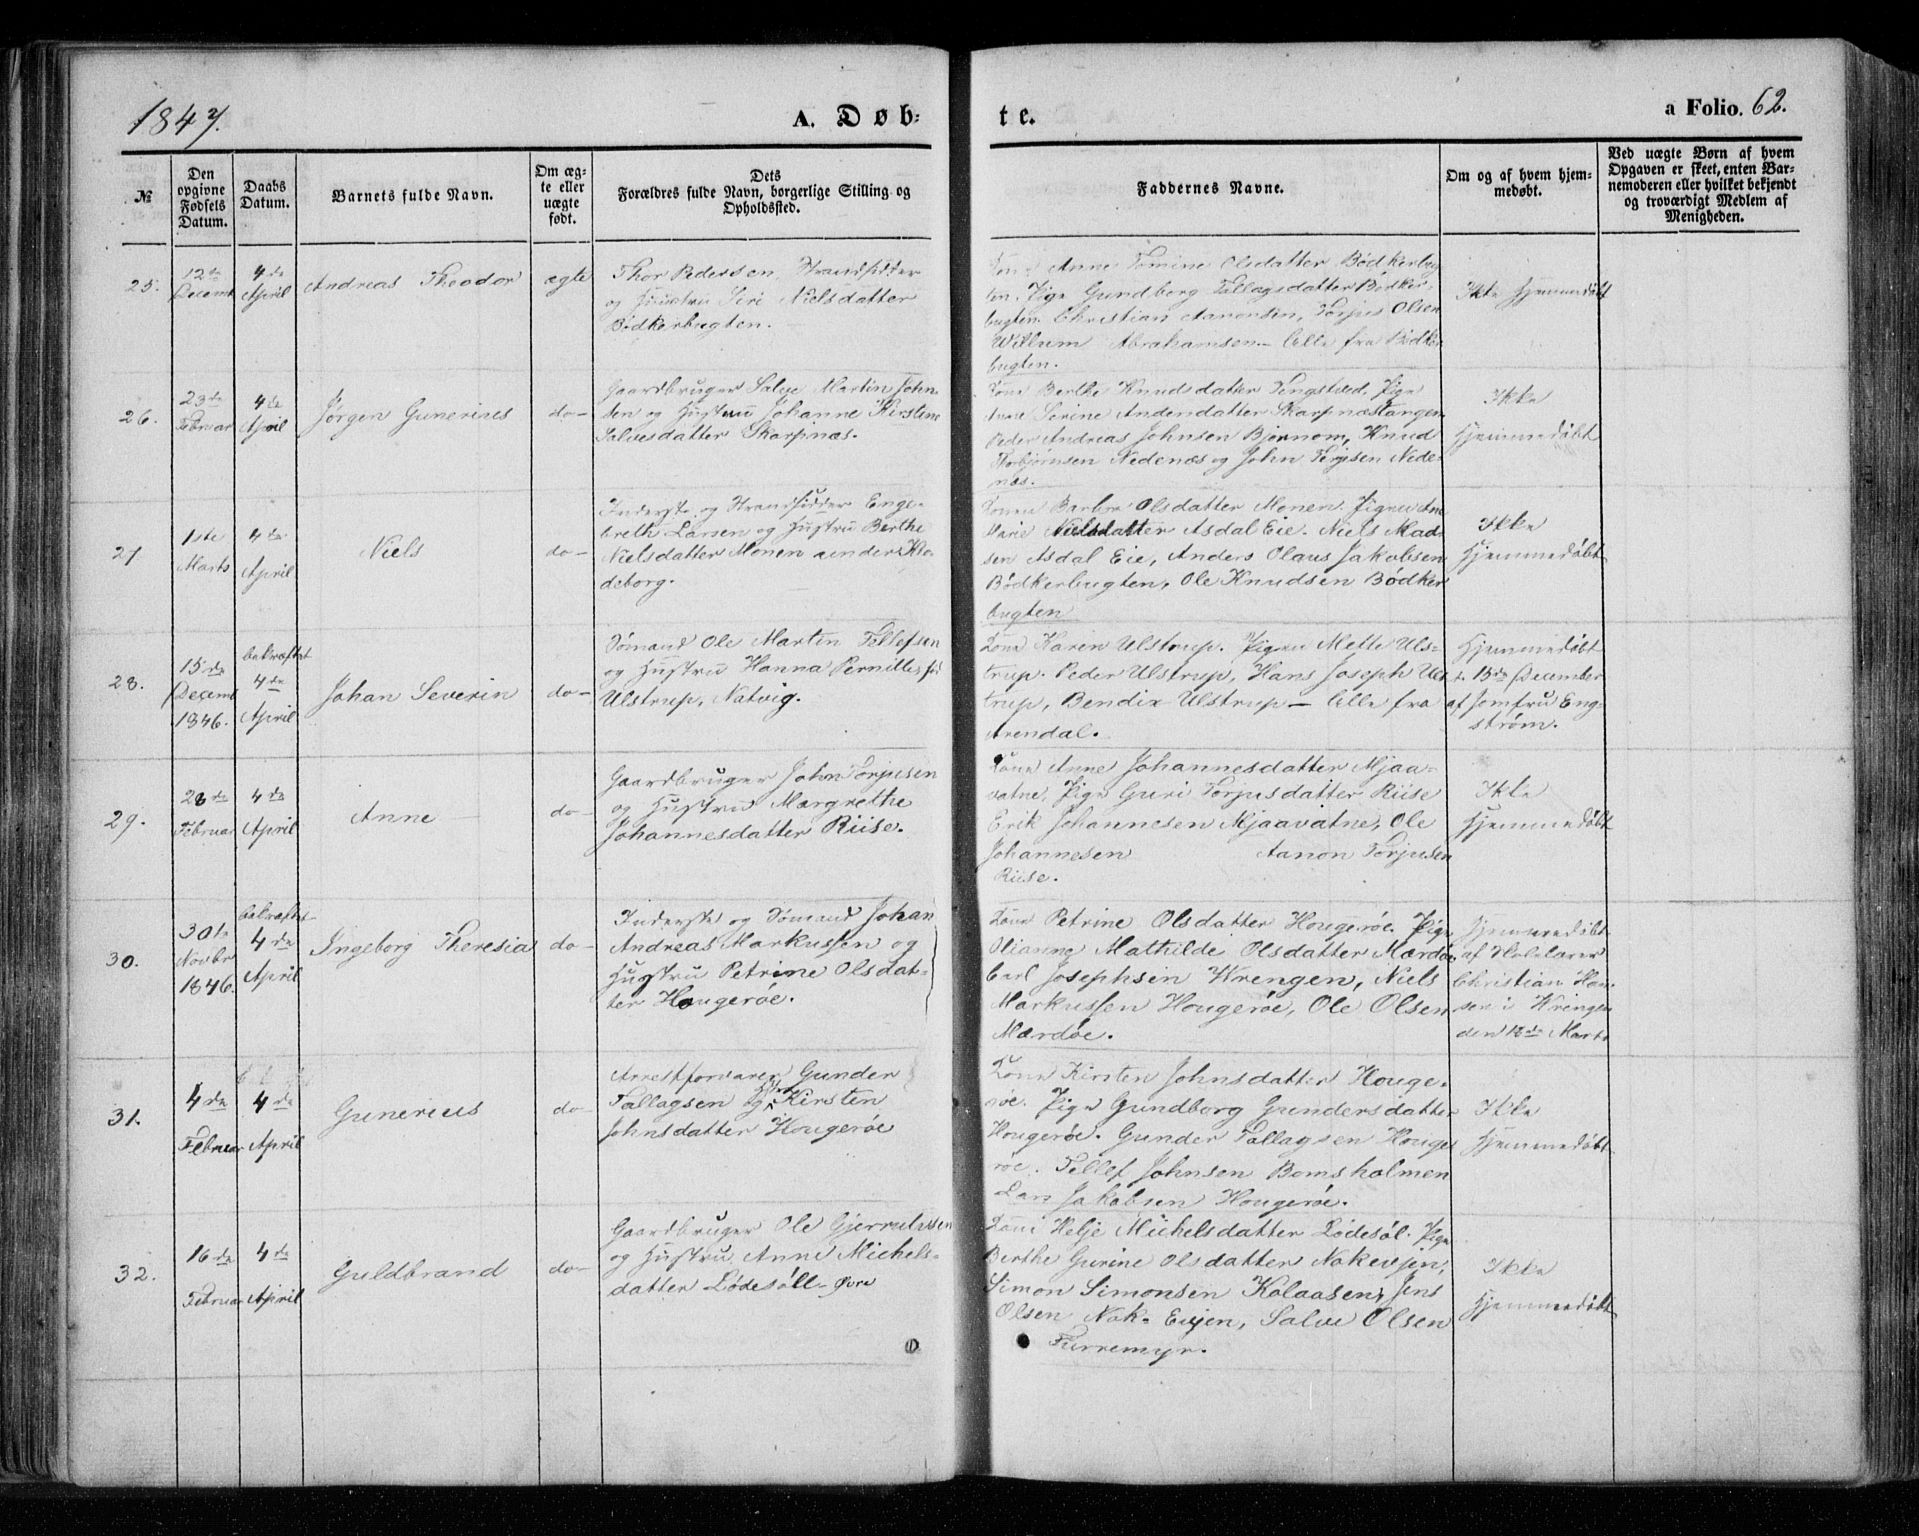 1847.
A. Døb-
te.
a Folio. 62.
№
Den opgivne Fødsels Datum.
Daabs Datum.
Barnets fulde Navn.
Om ægte eller uægte født.
Dets Forældres fulde Navn, borgerlige Stilling og Opholdssted.
Faddernes Navne.
Om og af hvem hjemmedøbt.
Ved uægte Børn af hvem Opgaven er skeet, enten Barnemoderen eller hvilket bekjendt og troværdigt Medlem af Menigheden.
25.
12te Decemb
4de April
Andreas Theodor
ægte
Thor Pedersen Strandsidder
og Hustru Siri Nielsdatter
Bödkerbugten.
Kone Anne Tomine Olsdatter Bödkerbug
ten. Pige Gundborg Tallagsdatter Bödker
bugten. Christian Aanonsen, Torjus Olsen
Willum Abrahamsen. Alle fra Bödker
bugten.
Ikke hjemmedøbt
26.
23de Februar
4de April
Jørgen Gunerius
do
Gaardbruger Salve Martin John-
sen og Hustru Johanne Kirstine
Salvesdatter Skarpnæs.
Kone Berthe Knudsdatter Tingstved. Pige
Anne Serine Andersdatter Skarpnæstangen
Peder Andreas Johnsen Bjørnom, Knud
Thorbjørnsen Nedenæs og John Terjesen Nede-
næs.
Ikke
Hjemmedøbt
27
1ste Marts
4de April
Niels
do
Inderste og Strandsidder Enge-
breth Larsen og Hustru Berthe
Nielsdatter Monen under Klo-
deborg.
Konen Barbro Olsdatter Monen. Pigen Ane
Marie Nielsdatter Asdal Eie. Niels Mad-
sen Asdal Eie, Anders Olaus Jakobsen
Bödkerbugten, Ole Knudsen Bödker
bugten
Ikke
Hjemmedøbt
28.
15de Decemb 1846.
bekræftet 4de April
Johan Severin
do
Sømand Ole Martin Tellefsen
og Hustru Hanna Pernille, fød
Ulstrup, Natvig.
Kone Karen Ulstrup. Pigen Mette Uls-
trup. Peder Ulstrup, Hans Joseph Uls
trup, Bendix Ulstrup — Alle fra
Arendal.
Hjemmedøbt
15de December
af Jomfru Eng-
strøm.
29.
28de Februar
4de April
Anne
do
Gaardbruger John Torjusen
og Hustru Margrethe
Johannesdatter Riise.
Kone Anne Johannesdatter Mjaa-
vatne, Pige Guri Torjusdatter Riise
Erik Johannesen Mjaavatne, Ole
Johannesen Aanon Torjusen
Riise.
Ikke
Hjemmedøbt
30.
30te Novbr 1846.
bekræftet 4de April
Ingeborg Theresia
do
Inderste og Sømand Johan
Andreas Markussen og
Hustru Petrine Olsdat-
ter Hougerøe.
Kone Petrine Olsdatter Hougerøe. Pige
Olianne Mathilde Olsdatter Mærdøe.
Carl Josephsen Wrengen, Niels
Markussen Hougerøe, Ole Olsen
Mærdøe.
Hjemmedøbt
af Skolelærer
Christian Han-
sen i Wrengen
den 12de Marts
31.
4de Februar
4de April
Gunerius
do
Arrestforvarer Gunder
Tallagsen og Hstr Kirsten
Johnsdatter Hougerøe
Kone Kirsten Johnsdatter Houge-
røe. Pige Gundborg Gundersdatter
Hougerøe. Gunder Tallagsen Houge
røe. Tellef Johnsen Bomsholmen
Lars Jakobsen Hougerøe.
Ikke
Hjemmedøbt
32.
16de Februar
4de April
Guldbrand
do
Gaardbruger Ole Gjerrulvsen
og Hustru Anne Michels-
datter Lødesøll Øvre
Kone Helje Michelsdatter Lødesøl. Pige
Berthe Gurine Olsdatter Nakevjen,
Simon Simonsen Kolaasen, Jens
Olsen Nak- Evjen, Salve Olsen
Furremyr.
Ikke
Hjemmedøbt